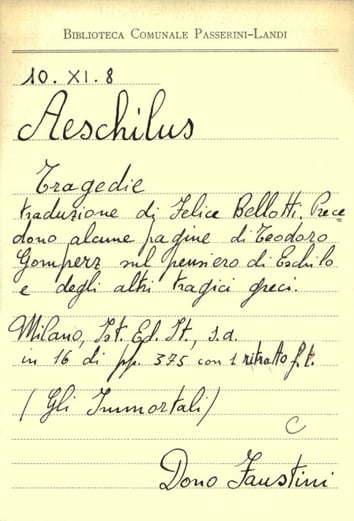 BIBLIOTECA COMUNALE PASSERINI-LANDI
10. XI. 8
Aeschilus
Tragedie
traduzione di Felice Bellotti. Prece
dono alcune pagine di Teodoro
Gomperz sul pensiero di Eschilo
e degli altri tragici greci.
Milano, Ist. Ed. It., s.a.
in 16 di pp. 375 con 1 ritratto f.t.
(Gli Immortali)
C
Dono Faustini